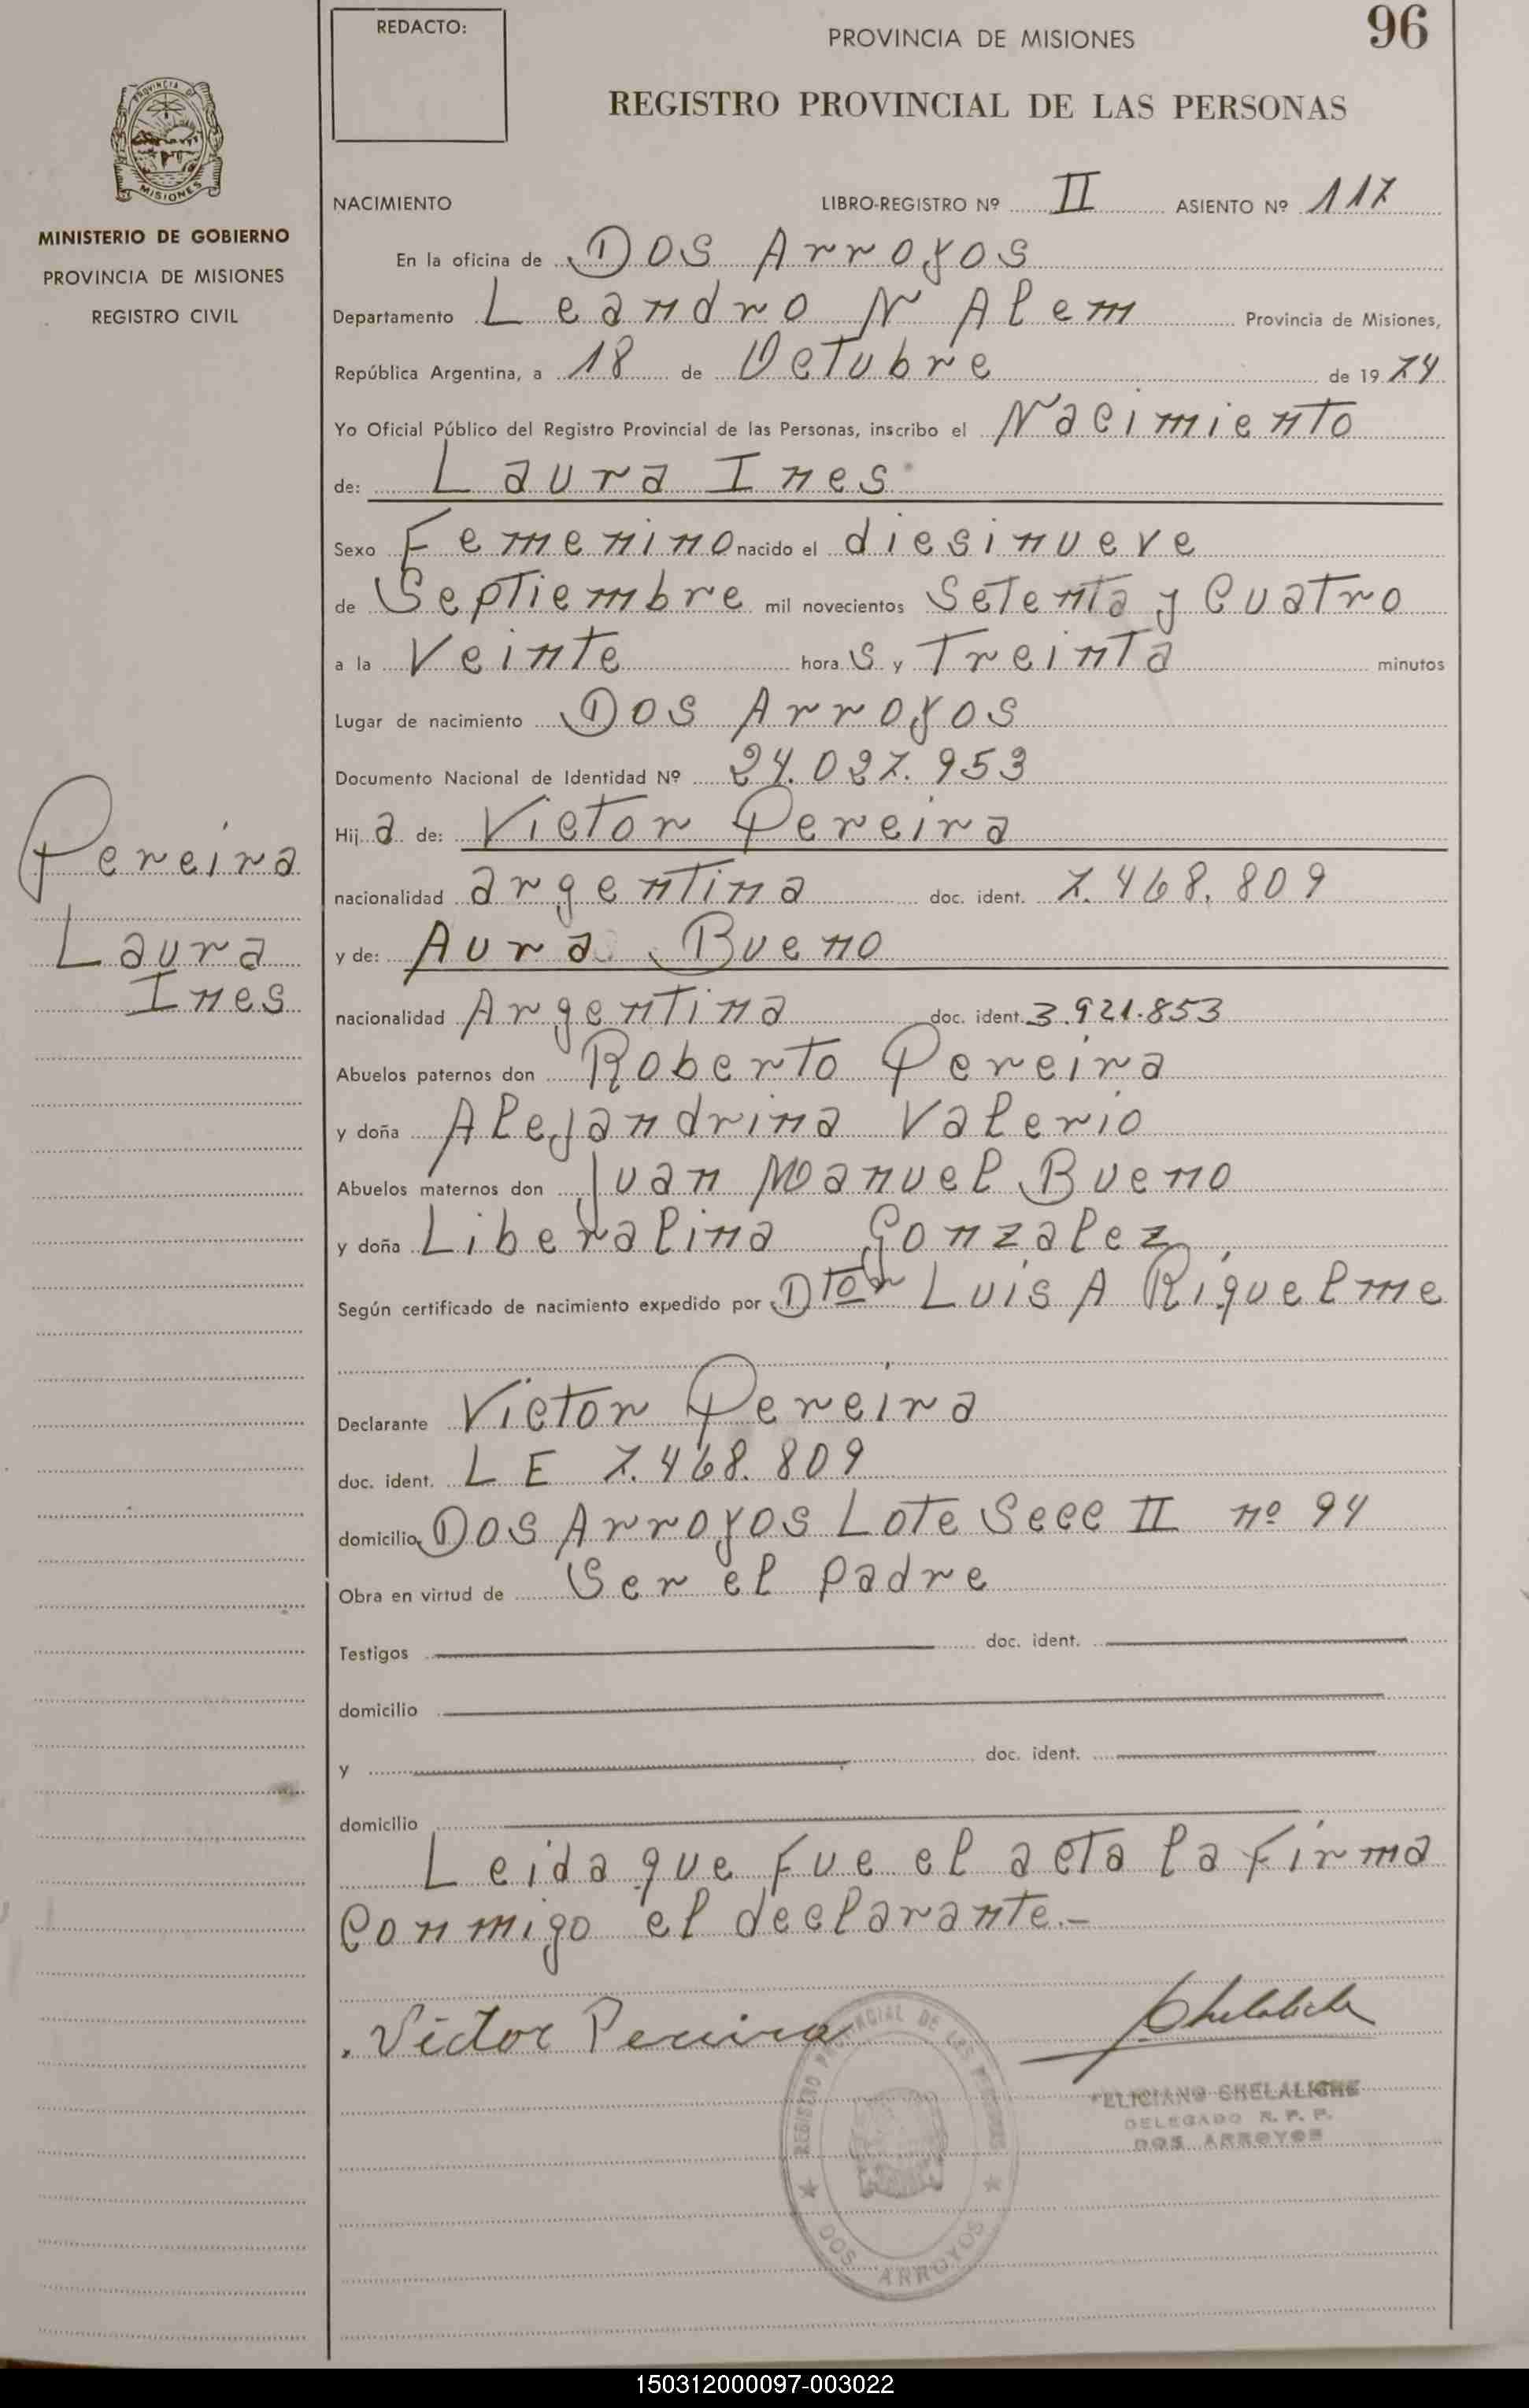 REDACTO:
PROVINCIA DE MISIONES
96
REGISTRO PROVINCIAL DE LAS PERSONAS
PROVINCIA DE
MISIONES
MINISTERIO DE GOBIERNO
PROVINCIA DE MISIONES
REGISTRO CIVIL
NACIMIENTO LIBRO-REGISTRO Nº II ASIENTO Nº 117
En la oficina de Dos Arroyos
Departamento Leandro N Alem Provincia de Misiones,
República Argentina, a 18 de Octubre de 1974
Yo Oficial Público del Registro Provincial de las Personas, inscribo el Nacimiento
de: Laura Ines
Sexo Femenino nacido el diesinueve
de Septiembre mil novecientos Setenta y Cuatro
a la Veinte hora s y Treinta minutos
Lugar de nacimiento Dos Arroyos
Documento Nacional de Identidad Nº 24.027.953
Hij a de: Victor Pereira
nacionalidad argentina doc. ident. 7.468.809
y de: Aura Bueno
nacionalidad Argentina doc. ident. 3.921.853
Abuelos paternos don Roberto Pereira
y doña Alejandrina Valerio
Abuelos maternos don Juan Manuel Bueno
y doña Liberalina Gonzalez
Según certificado de nacimiento expedido por Dtor Luis A Riquelme
Declarante Victor Pereira
doc. ident. L E 7.468.809
domicilio Dos Arroyos Lote Secc II nº 94
Obra en virtud de Ser el padre
Testigos doc. ident.
domicilio
y doc. ident.
domicilio
Leida que fue el acta la firma
Conmigo el declarante.-
Pereira
Laura
Ines
Victor Pereira
Chelaliche
FELICIANO CHELALICHE
DELEGADO R. P. P.
DOS ARROYOS
REGISTRO PROVINCIAL DE LAS PERSONAS
DOS ARROYOS
150312000097-003022